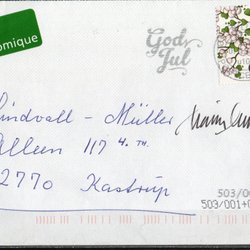 omique
God
Jul
indvall - Müller
lleen 117 4. TH.
2770 Kastrup
503/00
503/001+0